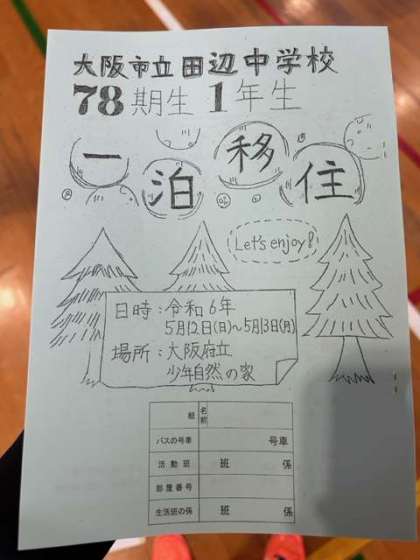 大阪市立田辺中学校
78期生 1年生
一泊移住
Let's enjoy!
日時:令和6年
5月12日(日)~5月13日(月)
場所:大阪府立
少年自然の家
組 名前
バスの号車 号車
活動班 班 係
部屋番号
生活班の係 班 係